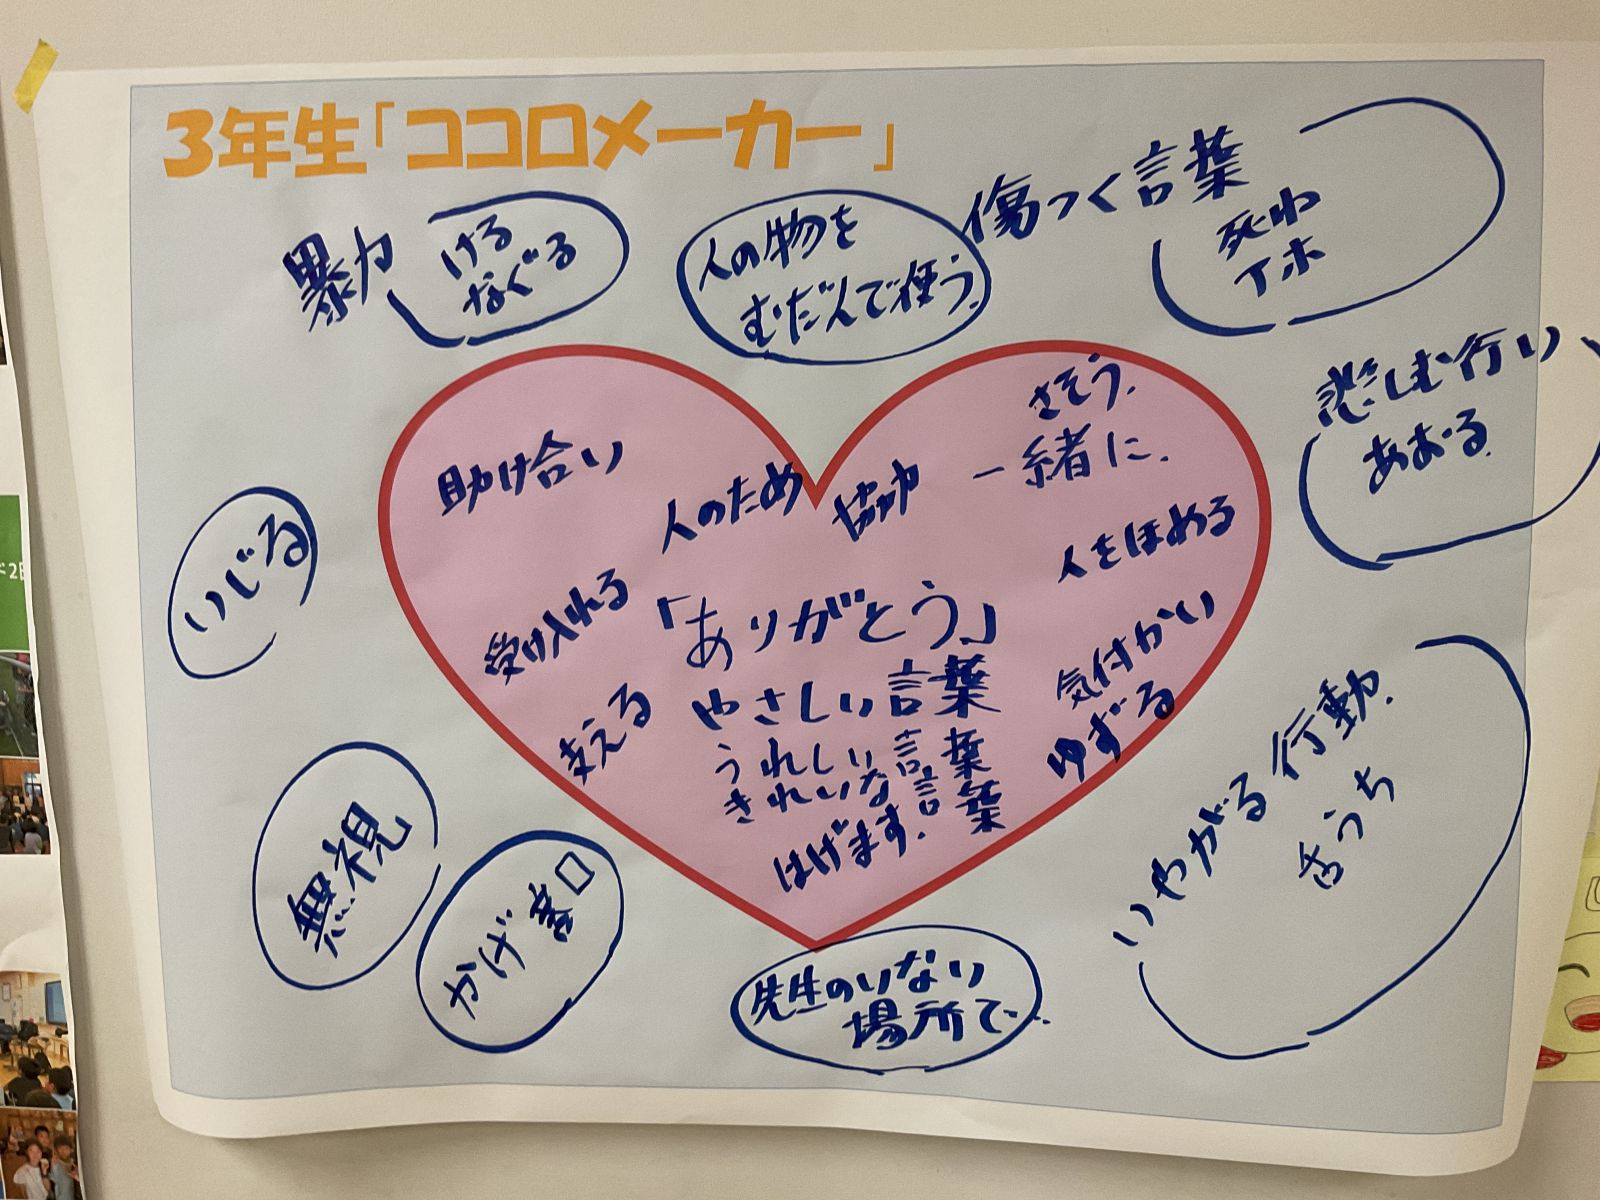 3年生「ココロメーカー」
暴力
ける
なぐる
人の物を
むだんで使う。
傷つく言葉
死ね
アホ
悲しむ行い
あおる。
さそう。
一緒に。
助け合い
人のため
協力
人をほめる
いじる
受け入れる
「ありがとう」
気付かい
支える
やさしい言葉
ゆずる
うれしい言葉
きれいな言葉
はげます。
いやがる行動
舌うち
無視
かげ悪口
先生のいない
場所で…